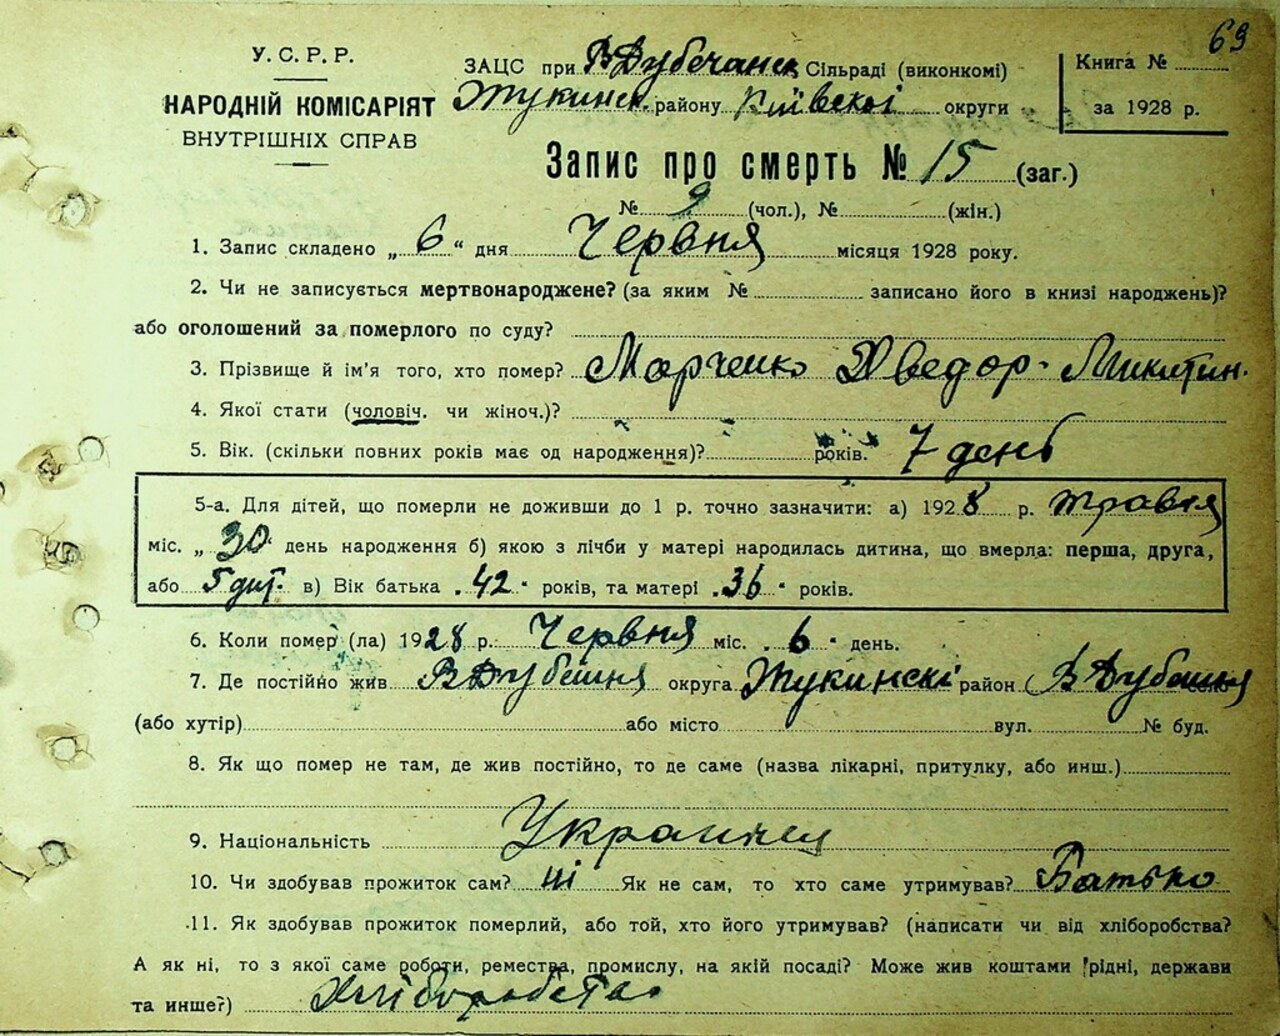 69
У. С. Р. Р.
НАРОДНІЙ КОМІСАРІЯТ
ВНУТРІШНІХ СПРАВ
ЗАЦС при В Дубечанск Сільраді (виконкомі)
Жукинск. району Київскої округи
Книга №
за 1928 р.
Запис про смерть № 15 (заг.)
№ 9 (чол.), № (жін.)
1. Запис складено „ 6 “ дня Червня місяця 1928 року.
2. Чи не записується мертвонароджене? (за яким № записано його в книзі народжень)?
або оголошений за померлого по суду?
3. Прізвище й ім'я того, хто помер? Марченко Хведор Микитин.
4. Якої стати (чоловіч. чи жіноч.)?
5. Вік. (скільки повних років має од народження)? років. 7 денб
5-а. Для дітей, що померли не доживши до 1 р. точно зазначити: а) 1928 р. травня
міс. „ 30 день народження б) якою з лічби у матері народилась дитина, що вмерла: перша, друга,
або 5 дит. в) Вік батька 42 років, та матері 36 років.
6. Коли помер (ла) 1928 р. Червня міс. 6 день.
7. Де постійно жив В Дубешня округа Жукинскі район В Дубешня
(або хутір) або місто вул. № буд.
8. Як що помер не там, де жив постійно, то де саме (назва лікарні, притулку, або инш.)
9. Національність Украинец
10. Чи здобував прожиток сам? ні Як не сам, то хто саме утримував? Батько
11. Як здобував прожиток померлий, або той, хто його утримував? (написати чи від хліборобства?
А як ні, то з якої саме роботи, ремества, промислу, на якій посаді? Може жив коштами рідні, держави
та инше?) Хліборобства